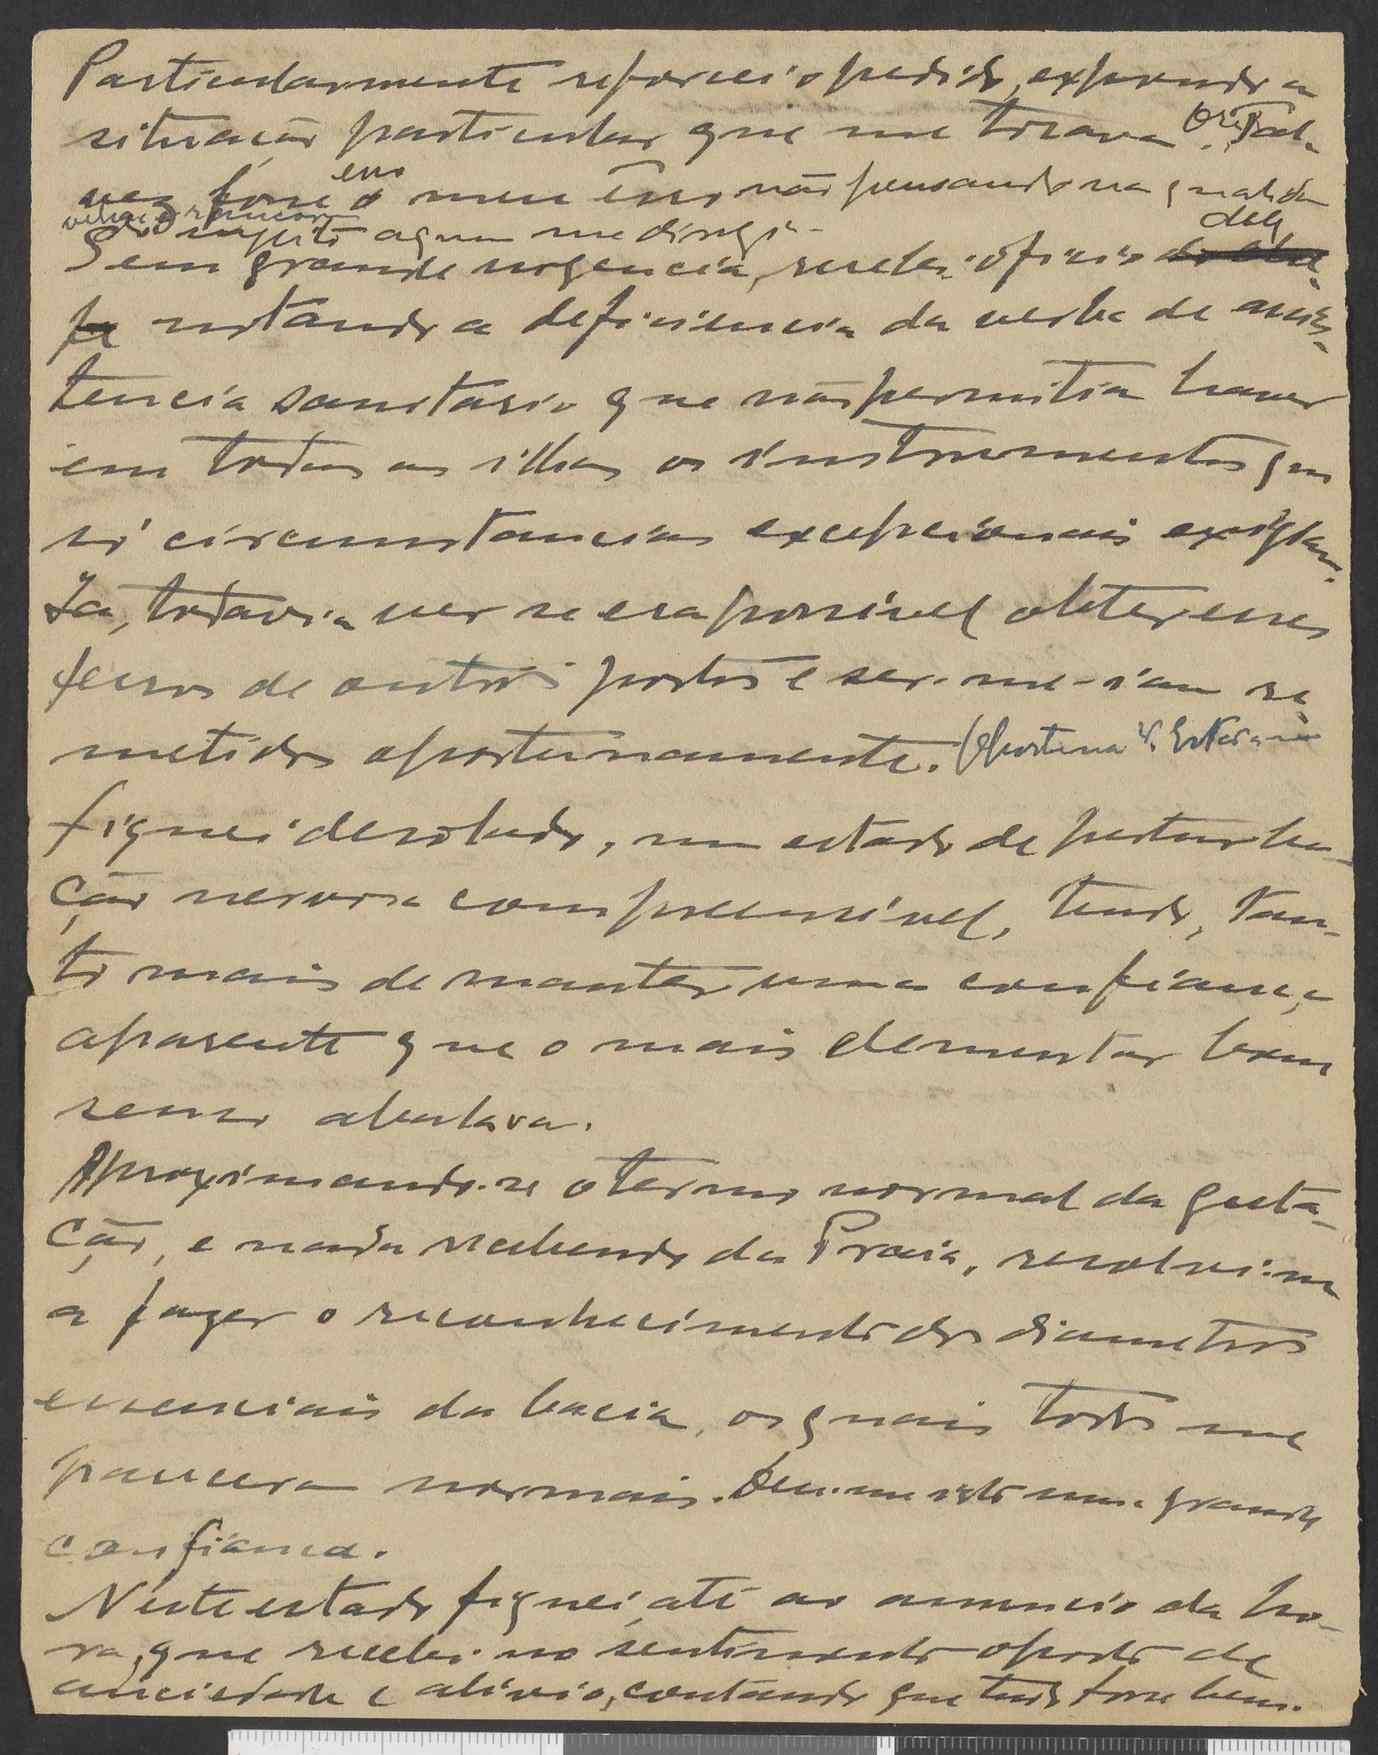 Particularmente reforcei o pedido, expondo a
situação particular que me tocava. Tal-
vez fosse esse o meu erro não pensando na qualida
de do sujeito a quem me dirigi.
Sem grande urgencia, recebi oficio dele
notando a deficiencia da verba de assis-
tencia sanitaria que não permitia haver
em todas as ilhas os instrumentos que
só circumstancias excepcionais exigiam.
Ia, todavia ver se era possivel obter esses
ferros de outros portos e ser-me-iam re
metidos oportunamente.
Fiquei desolado, num estado de perturba-
ção nervosa compreensivel, tendo, tan-
to mais de manter uma confiança
aparente que o mais elementar bom
senso abalava.
Aproximando-se o termo normal da gesta-
ção, e nada recebendo da Praia, resolvi-me
a fazer o reconhecimento dos diametros
essenciais da bacia, os quais todos me
pareceram normais. Deu-me isto uma grande
confiança.
Neste estado fiquei até ao anuncio da ho-
ra, que recebi no sentimento oposto de
anciedade e alivio, contando que tudo fosse bem.